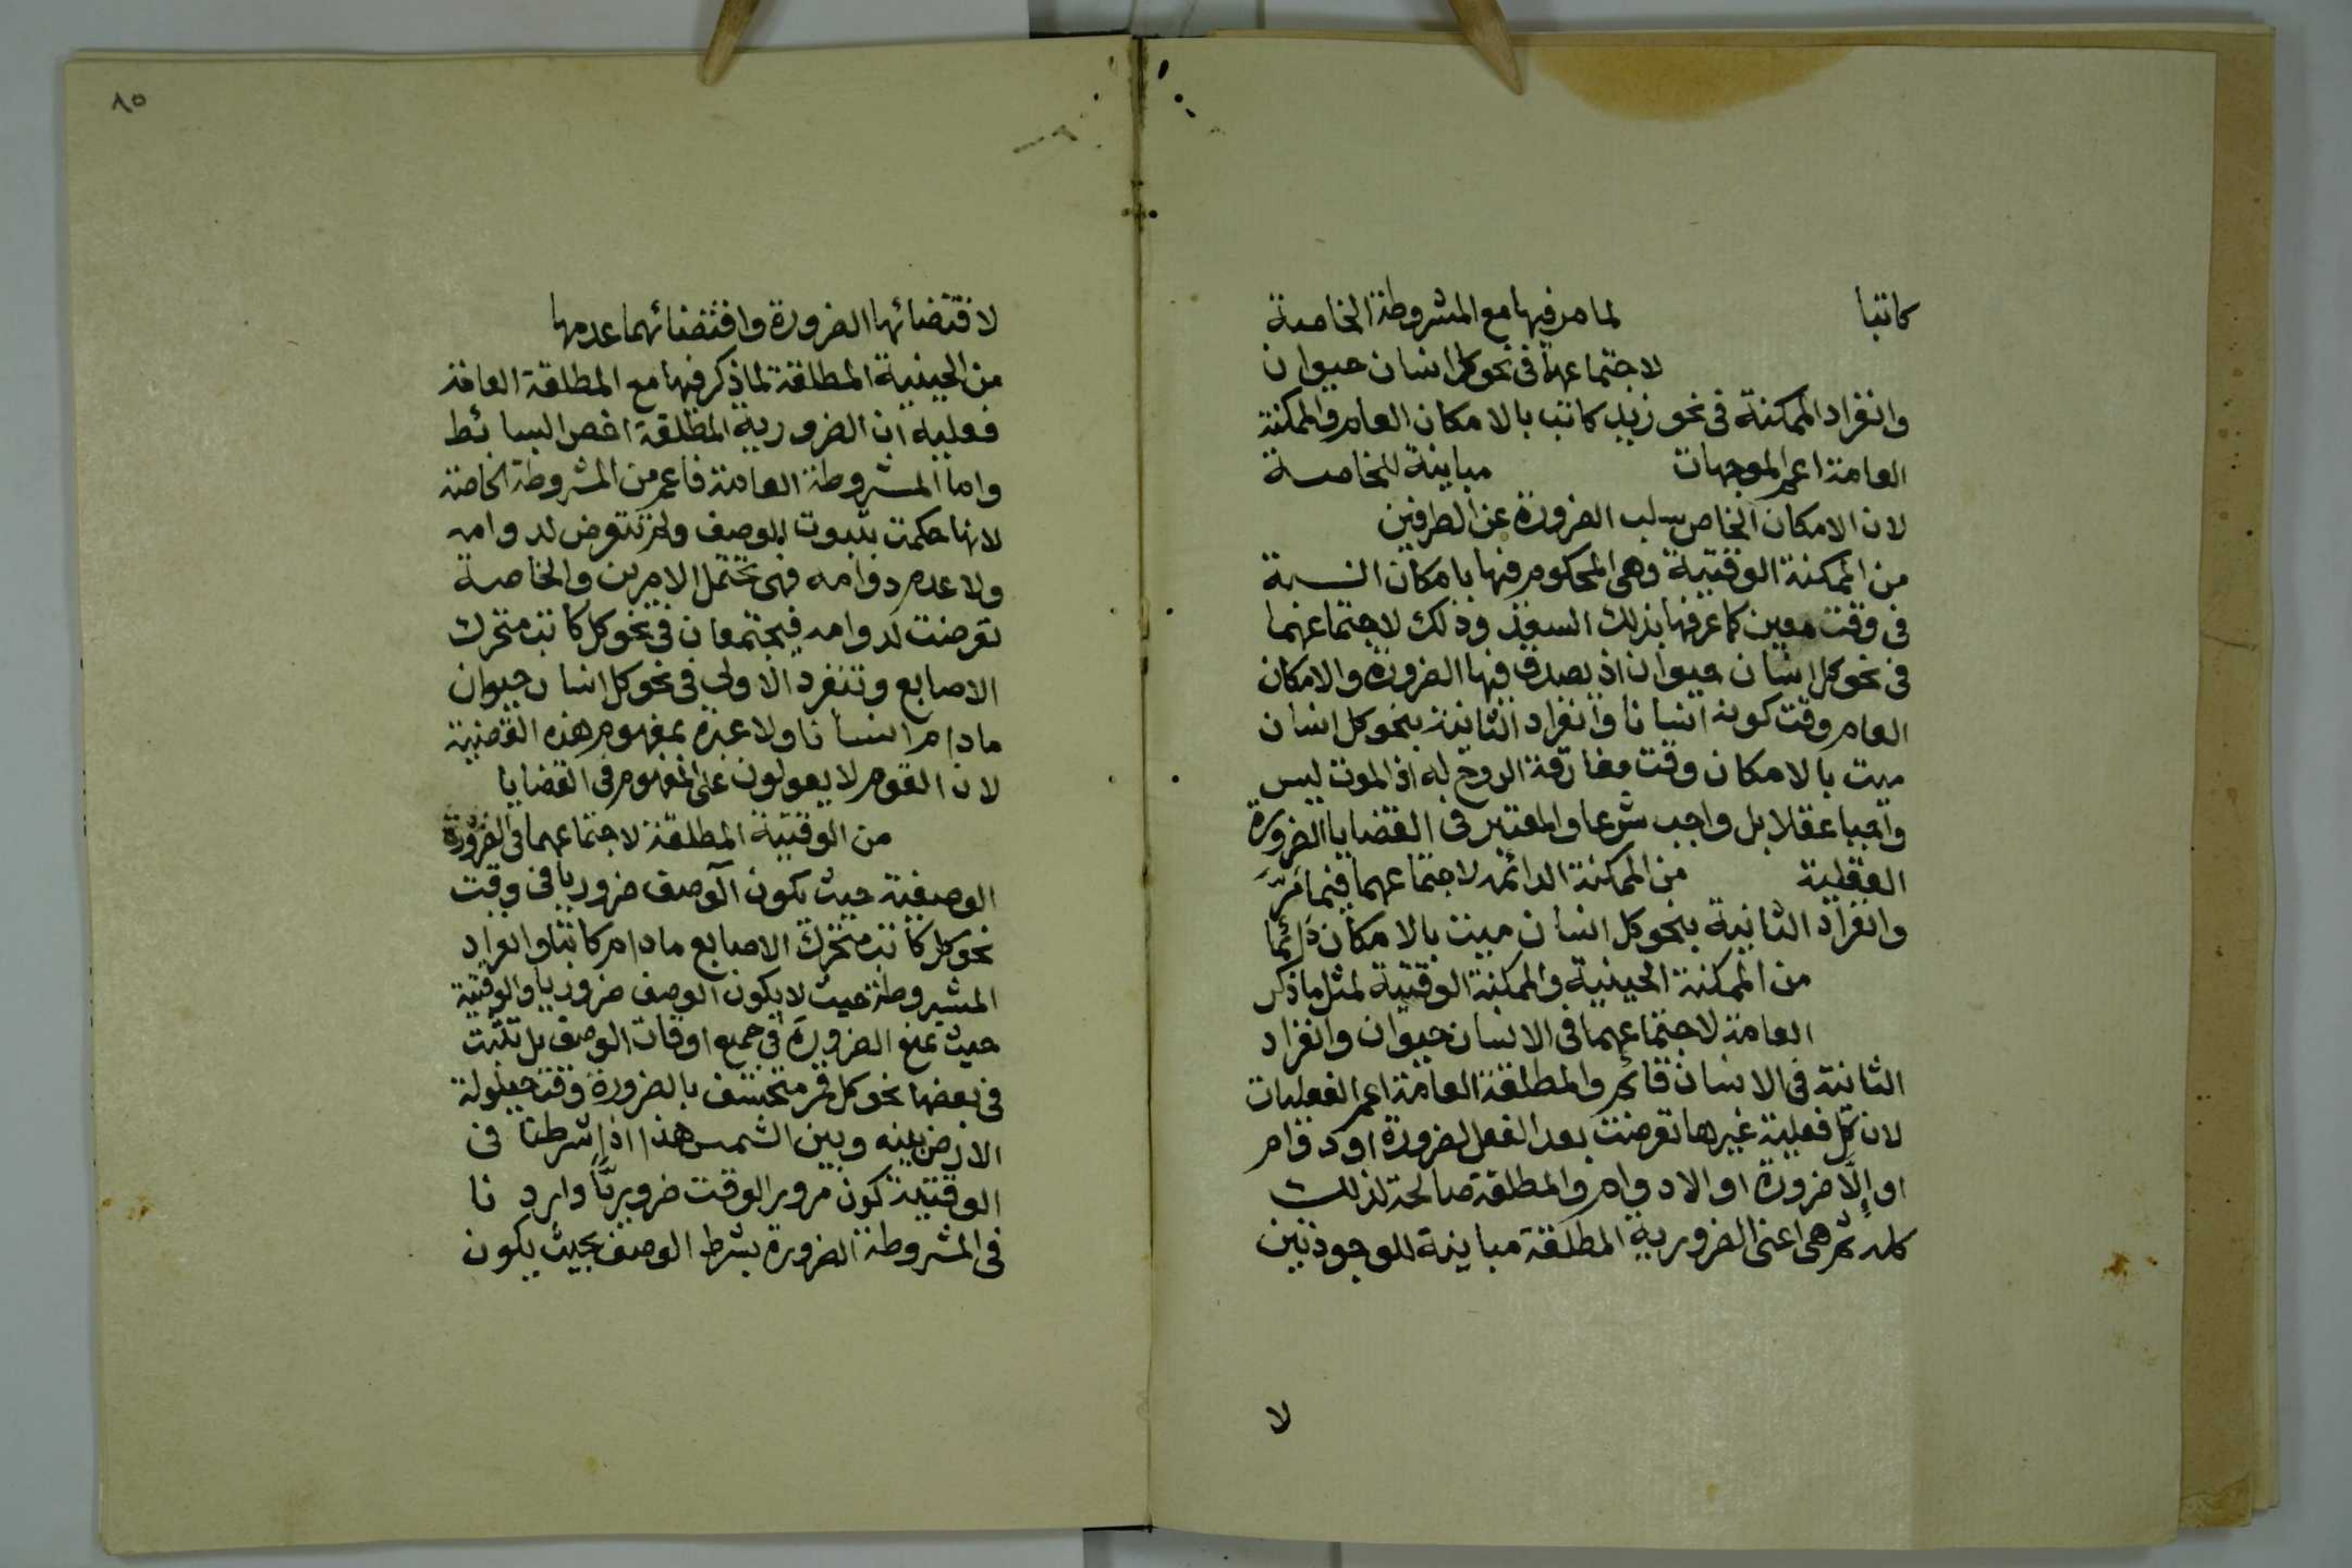 كاتبا لما مر فيها مع المشروطة الخاصة
لاجتماعهما فى نحو كل انسان حيوان
وانفراد الممكنة فى نحو زيد كاتب بالامكان العام والممكنة
العامة اعم الموجهات مباينة للخاصة
لان الامكان الخاص سلب الضرورة عن الطرفين
من الممكنة الوقتية وهى المحكوم فيها بامكان النسبة
فى وقت معين كما عرفها بذلك السعد وذلك لاجتماعهما
فى نحو كل انسان حيوان اذ يصدق فيها الضرورة والامكان
العام وقت كونه انسانا وانفراد الثانية بنحو كل انسان
ميت بالامكان وقت مفارقة الروح له اذ الموت ليس
واجبا عقلا بل واجب شرعا والمعتبر فى القضايا الضرورة
العقلية من الممكنة الدائمة لاجتماعهما فيما مرّ
وانفراد الثانية بنحو كل انسان ميت بالامكان دائما
من الممكنة الحينية والممكنة الوقتية لمثل ما ذكر
العامة لاجتماعهما فى الانسان حيوان وانفراد
الثانية فى الانسان قائم والمطلقة العامة اعم الفعليات
لان كل فعلية غيرها تعرضت بعد الفعل لضرورة او دوام
او إلّا ضرورة او الادوام والمطلقة صالحة لذلك
كله ثم هى اعنى الضرورية المطلقة مباينة للوجوديتين
لا
٨٥
لاقتضائها الضرورة واقتضائهما عدمها
من الحينية المطلقة لما ذكر فيها مع المطلقة العامة
فعليه ان الضرورية المطلقة اخص البسائط
واما المشروطة العامة فاعم من المشروطة الخاصة
لانها حكمت بثبوت الوصف ولم تتعرض لدوامه
ولا عدم دوامه فهى تحتمل الامرين والخاصة
تعرضت لدوامه فيجتمعان فى نحو كل كاتب متحرك
الاصابع وتنفرد الاولى فى نحو كل انسان حيوان
مادام انسانا ولا عبرة بمفهوم هذه القضية
لان القوم لا يعولون على المفهوم فى القضايا
من الوقتية المطلقة لاجتماعهما فى الضرورة
الوصفية حيث يكون الوصف ضروريا فى وقت
نحو كل كاتب متحرك الاصابع مادام كاتبا وانفراد
المشروطة حيث لا يكون الوصف ضروريا والوقتية
حيث تمنع الضرورة فى جميع اوقات الوصف بل تثبت
فى بعضها نحو كل قمر منخسف بالضرورة وقت حيلولة
الارض بينه وبين الشمس هذا اذا شرطنا فى
الوقتية كون مرور الوقت ضروريّاً واردنا
فى المشروطة الضرورة بشرط الوصف بحيث يكون